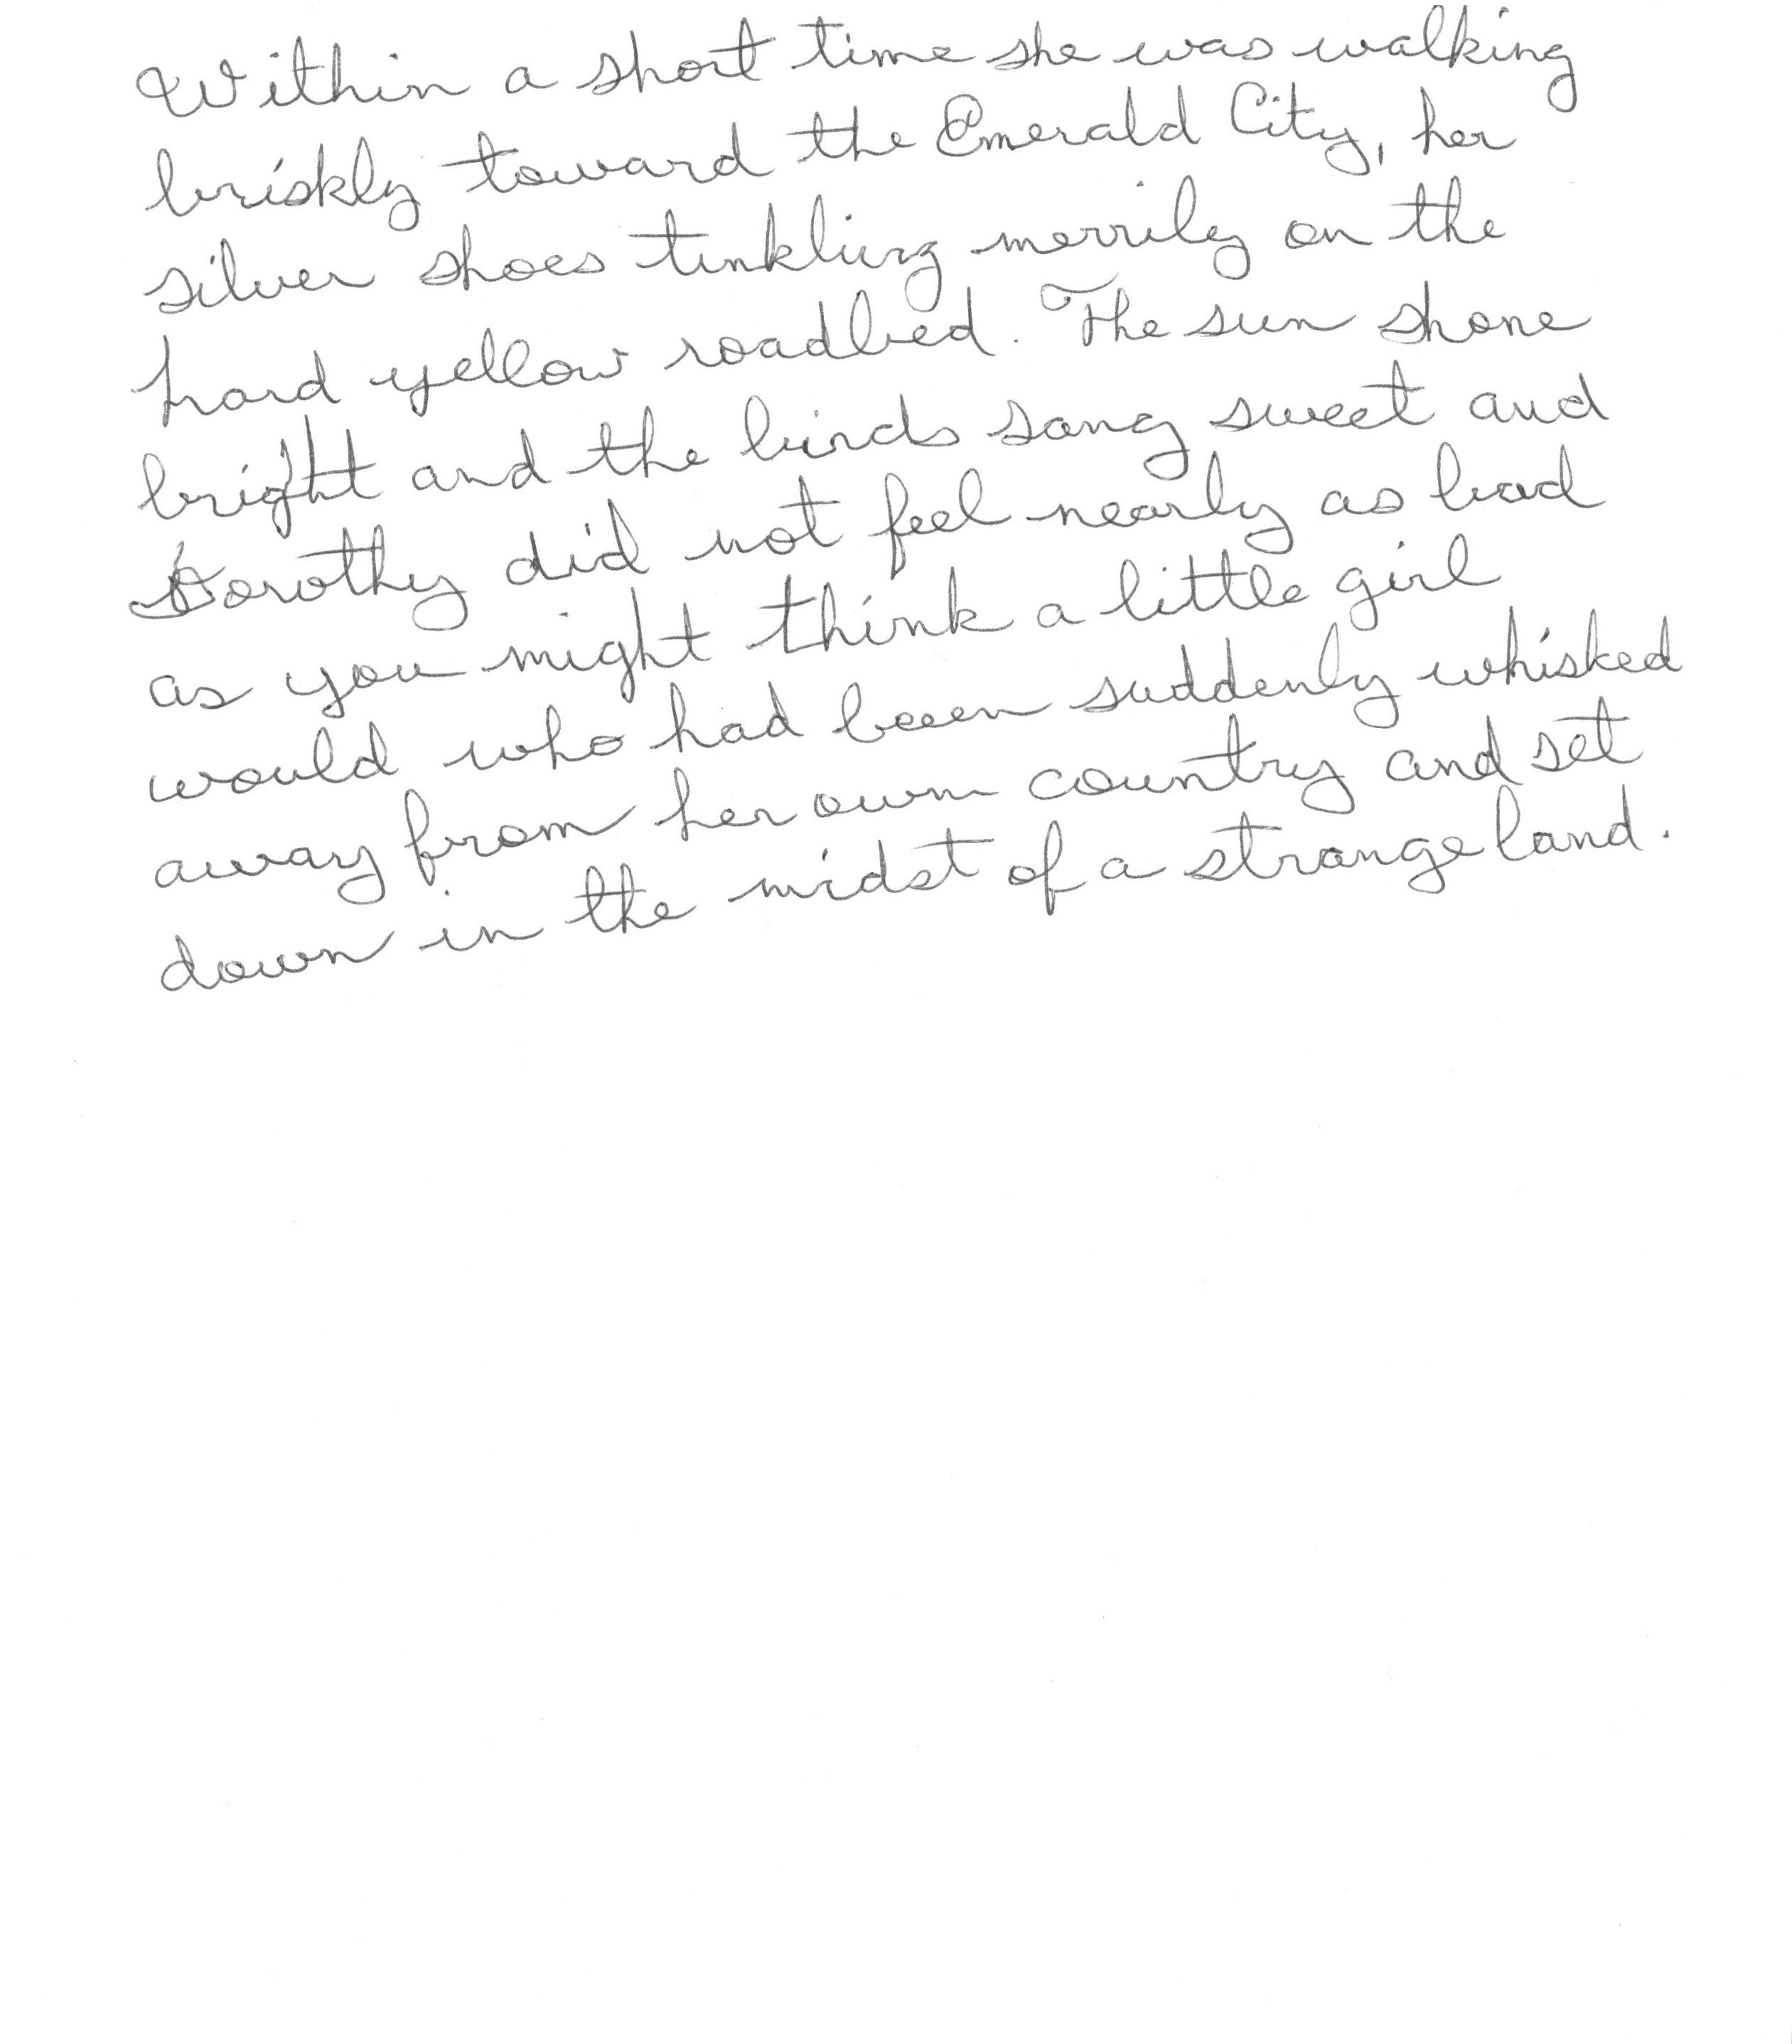 Within a short time she was walking
briskly toward the Emerald City, her
silver shoes tinkling merrily on the
hard yellow roadbed. The sun shone
bright and the birds sang sweet and
Dorothy did not feel nearly as bad
as you might think a little girl
would who had been suddenly whisked
away from her own country and set
down in the midst of a strange land.